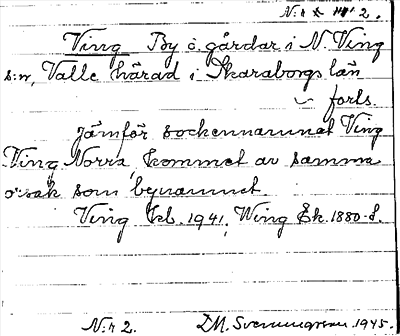 N:r 2.
Ving By o. gårdar i N. Ving
s:n, Valle härad i Skaraborgs län
forts.
Jämför sockennamnet Ving
Ving Norra, kommet av samma
orsak som bynamnet.
Ving Ekl. 1941, Wing Ek. 1880-t.
N:r 2. 1945.